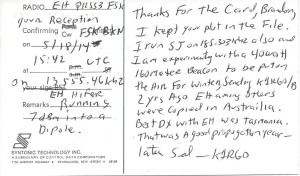 RADIO EH PHSS3 FSK
your Reception
Confirming CW FSK BKN
5/18/14
15:42 UTC
on 13,555.46 kHz
EH HiFer
Remarks Running
7dBm into a
Dipole.
SYNTONIC TECHNOLOGY INC.
A SUBSIDIARY OF CONTROL DATA CORPORATION
Thanks For The Card, Brandon,
I kept your pbt in the File.
I run SJ on 185.303kHz also and
I am experimenting with a 40watt
160meter Beacon to be put on
the Air For Winter, Sending K1RGO/B
2 yrs Ago EH among others
were copied in Austrailia.
Best DX with EH was Tasmania.
That was a good propagation year—
later Sal — K1RGO